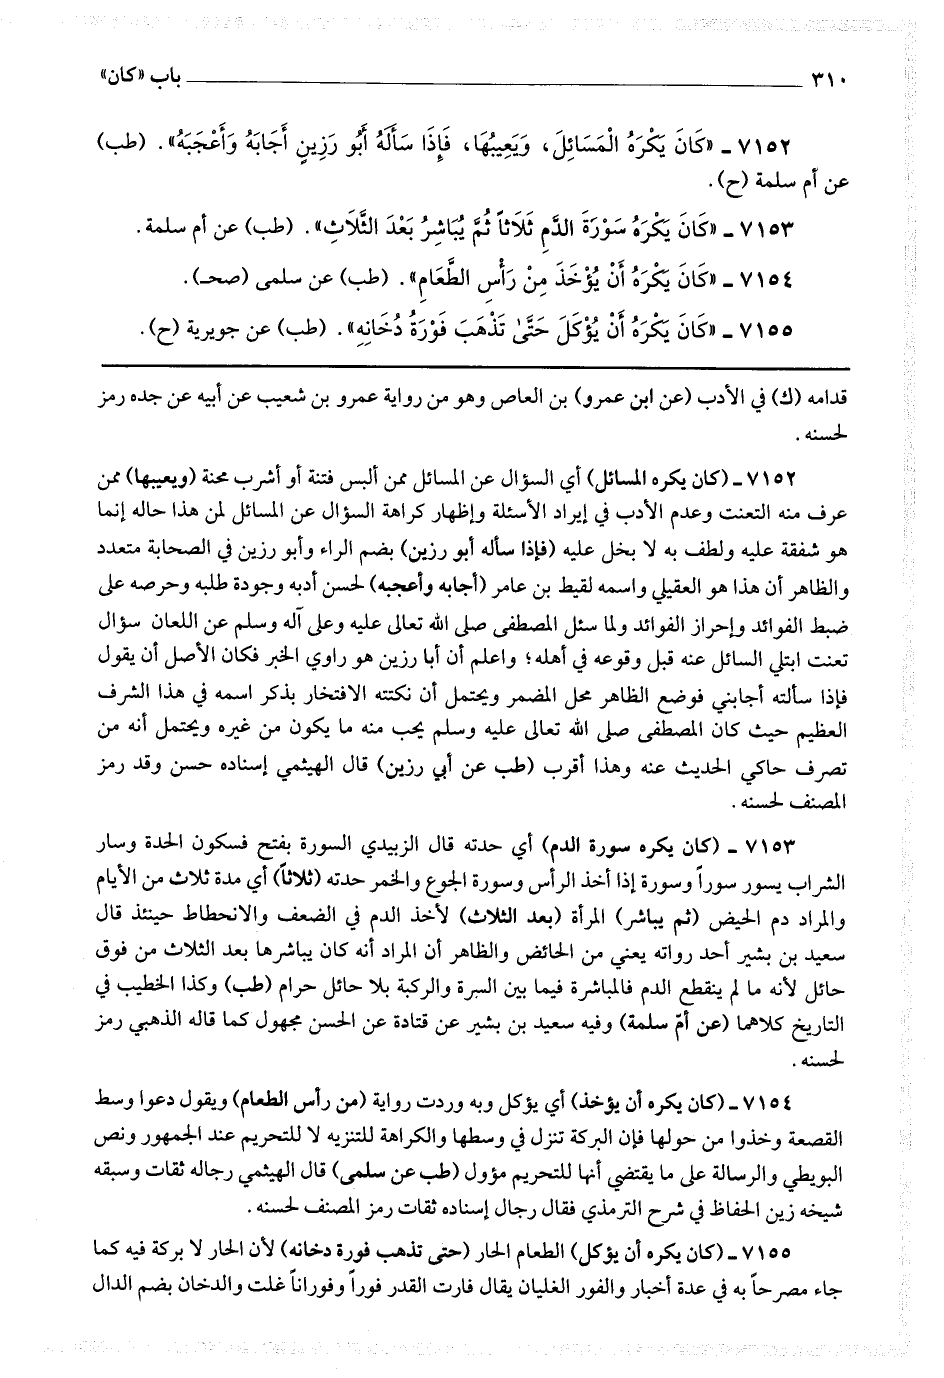 ٣١٠ باب «كان»
٧١٥٢ ـ «كَانَ يَكْرَهُ الْمَسَائِلَ، وَيَعِيبُهَا، فَإِذَا سَأَلَهُ أَبُو رَزِينٍ أَجَابَهُ وَأَعْجَبَهُ». (طب)
عن أم سلمة (ح).
٧١٥٣ ـ «كَانَ يَكْرَهُ سَوْرَةَ الدَّمِ ثَلَاثاً ثُمَّ يُبَاشِرُ بَعْدَ الثَّلَاثِ». (طب) عن أم سلمة.
٧١٥٤ ـ «كَانَ يَكْرَهُ أَنْ يُؤْخَذَ مِنْ رَأْسِ الطَّعَامِ». (طب) عن سلمى (صحـ).
٧١٥٥ ـ «كَانَ يَكْرَهُ أَنْ يُؤْكَلَ حَتَّىٰ تَذْهَبَ فَوْرَةُ دُخَانِهِ». (طب) عن جويرية (ح).
قدامه (ك) في الأدب (عن ابن عمرو) بن العاص وهو من رواية عمرو بن شعيب عن أبيه عن جده رمز
لحسنه.
٧١٥٢ ـ (كان يكره المسائل) أي السؤال عن المسائل ممن ألبس فتنة أو أشرب محنة (ويعيبها) ممن
عرف منه التعنت وعدم الأدب في إيراد الأسئلة وإظهار كراهة السؤال عن المسائل لمن هذا حاله إنما
هو شفقة عليه ولطف به لا بخل عليه (فإذا سأله أبو رزين) بضم الراء وأبو رزين في الصحابة متعدد
والظاهر أن هذا هو العقيلي واسمه لقيط بن عامر (أجابه وأعجبه) لحسن أدبه وجودة طلبه وحرصه على
ضبط الفوائد وإحراز الفوائد ولما سئل المصطفى صلى الله تعالى عليه وعلى آله وسلم عن اللعان سؤال
تعنت ابتلي السائل عنه قبل وقوعه في أهله؛ واعلم أن أبا رزين هو راوي الخبر فكان الأصل أن يقول
فإذا سألته أجابني فوضع الظاهر محل المضمر ويحتمل أن نكتته الافتخار بذكر اسمه في هذا الشرف
العظيم حيث كان المصطفى صلى الله تعالى عليه وسلم يحب منه ما يكون من غيره ويحتمل أنه من
تصرف حاكي الحديث عنه وهذا أقرب (طب عن أبي رزين) قال الهيثمي إسناده حسن وقد رمز
المصنف لحسنه.
٧١٥٣ ـ (كان يكره سورة الدم) أي حدته قال الزبيدي السورة بفتح فسكون الحدة وسار
الشراب يسور سوراً وسورة إذا أخذ الرأس وسورة الجوع والخمر حدته (ثلاثاً) أي مدة ثلاث من الأيام
والمراد دم الحيض (ثم يباشر) المرأة (بعد الثلاث) لأخذ الدم في الضعف والانحطاط حينئذ قال
سعيد بن بشير أحد رواته يعني من الحائض والظاهر أن المراد أنه كان يباشرها بعد الثلاث من فوق
حائل لأنه ما لم ينقطع الدم فالمباشرة فيما بين السرة والركبة بلا حائل حرام (طب) وكذا الخطيب في
التاريخ كلاهما (عن أمّ سلمة) وفيه سعيد بن بشير عن قتادة عن الحسن مجهول كما قاله الذهبي رمز
لحسنه.
٧١٥٤ ـ (كان يكره أن يؤخذ) أي يؤكل وبه وردت رواية (من رأس الطعام) ويقول دعوا وسط
القصعة وخذوا من حولها فإن البركة تنزل في وسطها والكراهة للتنزيه لا للتحريم عند الجمهور ونص
البويطي والرسالة على ما يقتضي أنها للتحريم مؤول (طب عن سلمى) قال الهيثمي رجاله ثقات وسبقه
شيخه زين الحفاظ في شرح الترمذي فقال رجال إسناده ثقات رمز المصنف لحسنه.
٧١٥٥ ـ (كان يكره أن يؤكل) الطعام الحار (حتى تذهب فورة دخانه) لأن الحار لا بركة فيه كما
جاء مصرحاً به في عدة أخبار والفور الغليان يقال فارت القدر فوراً وفوراناً غلت والدخان بضم الدال